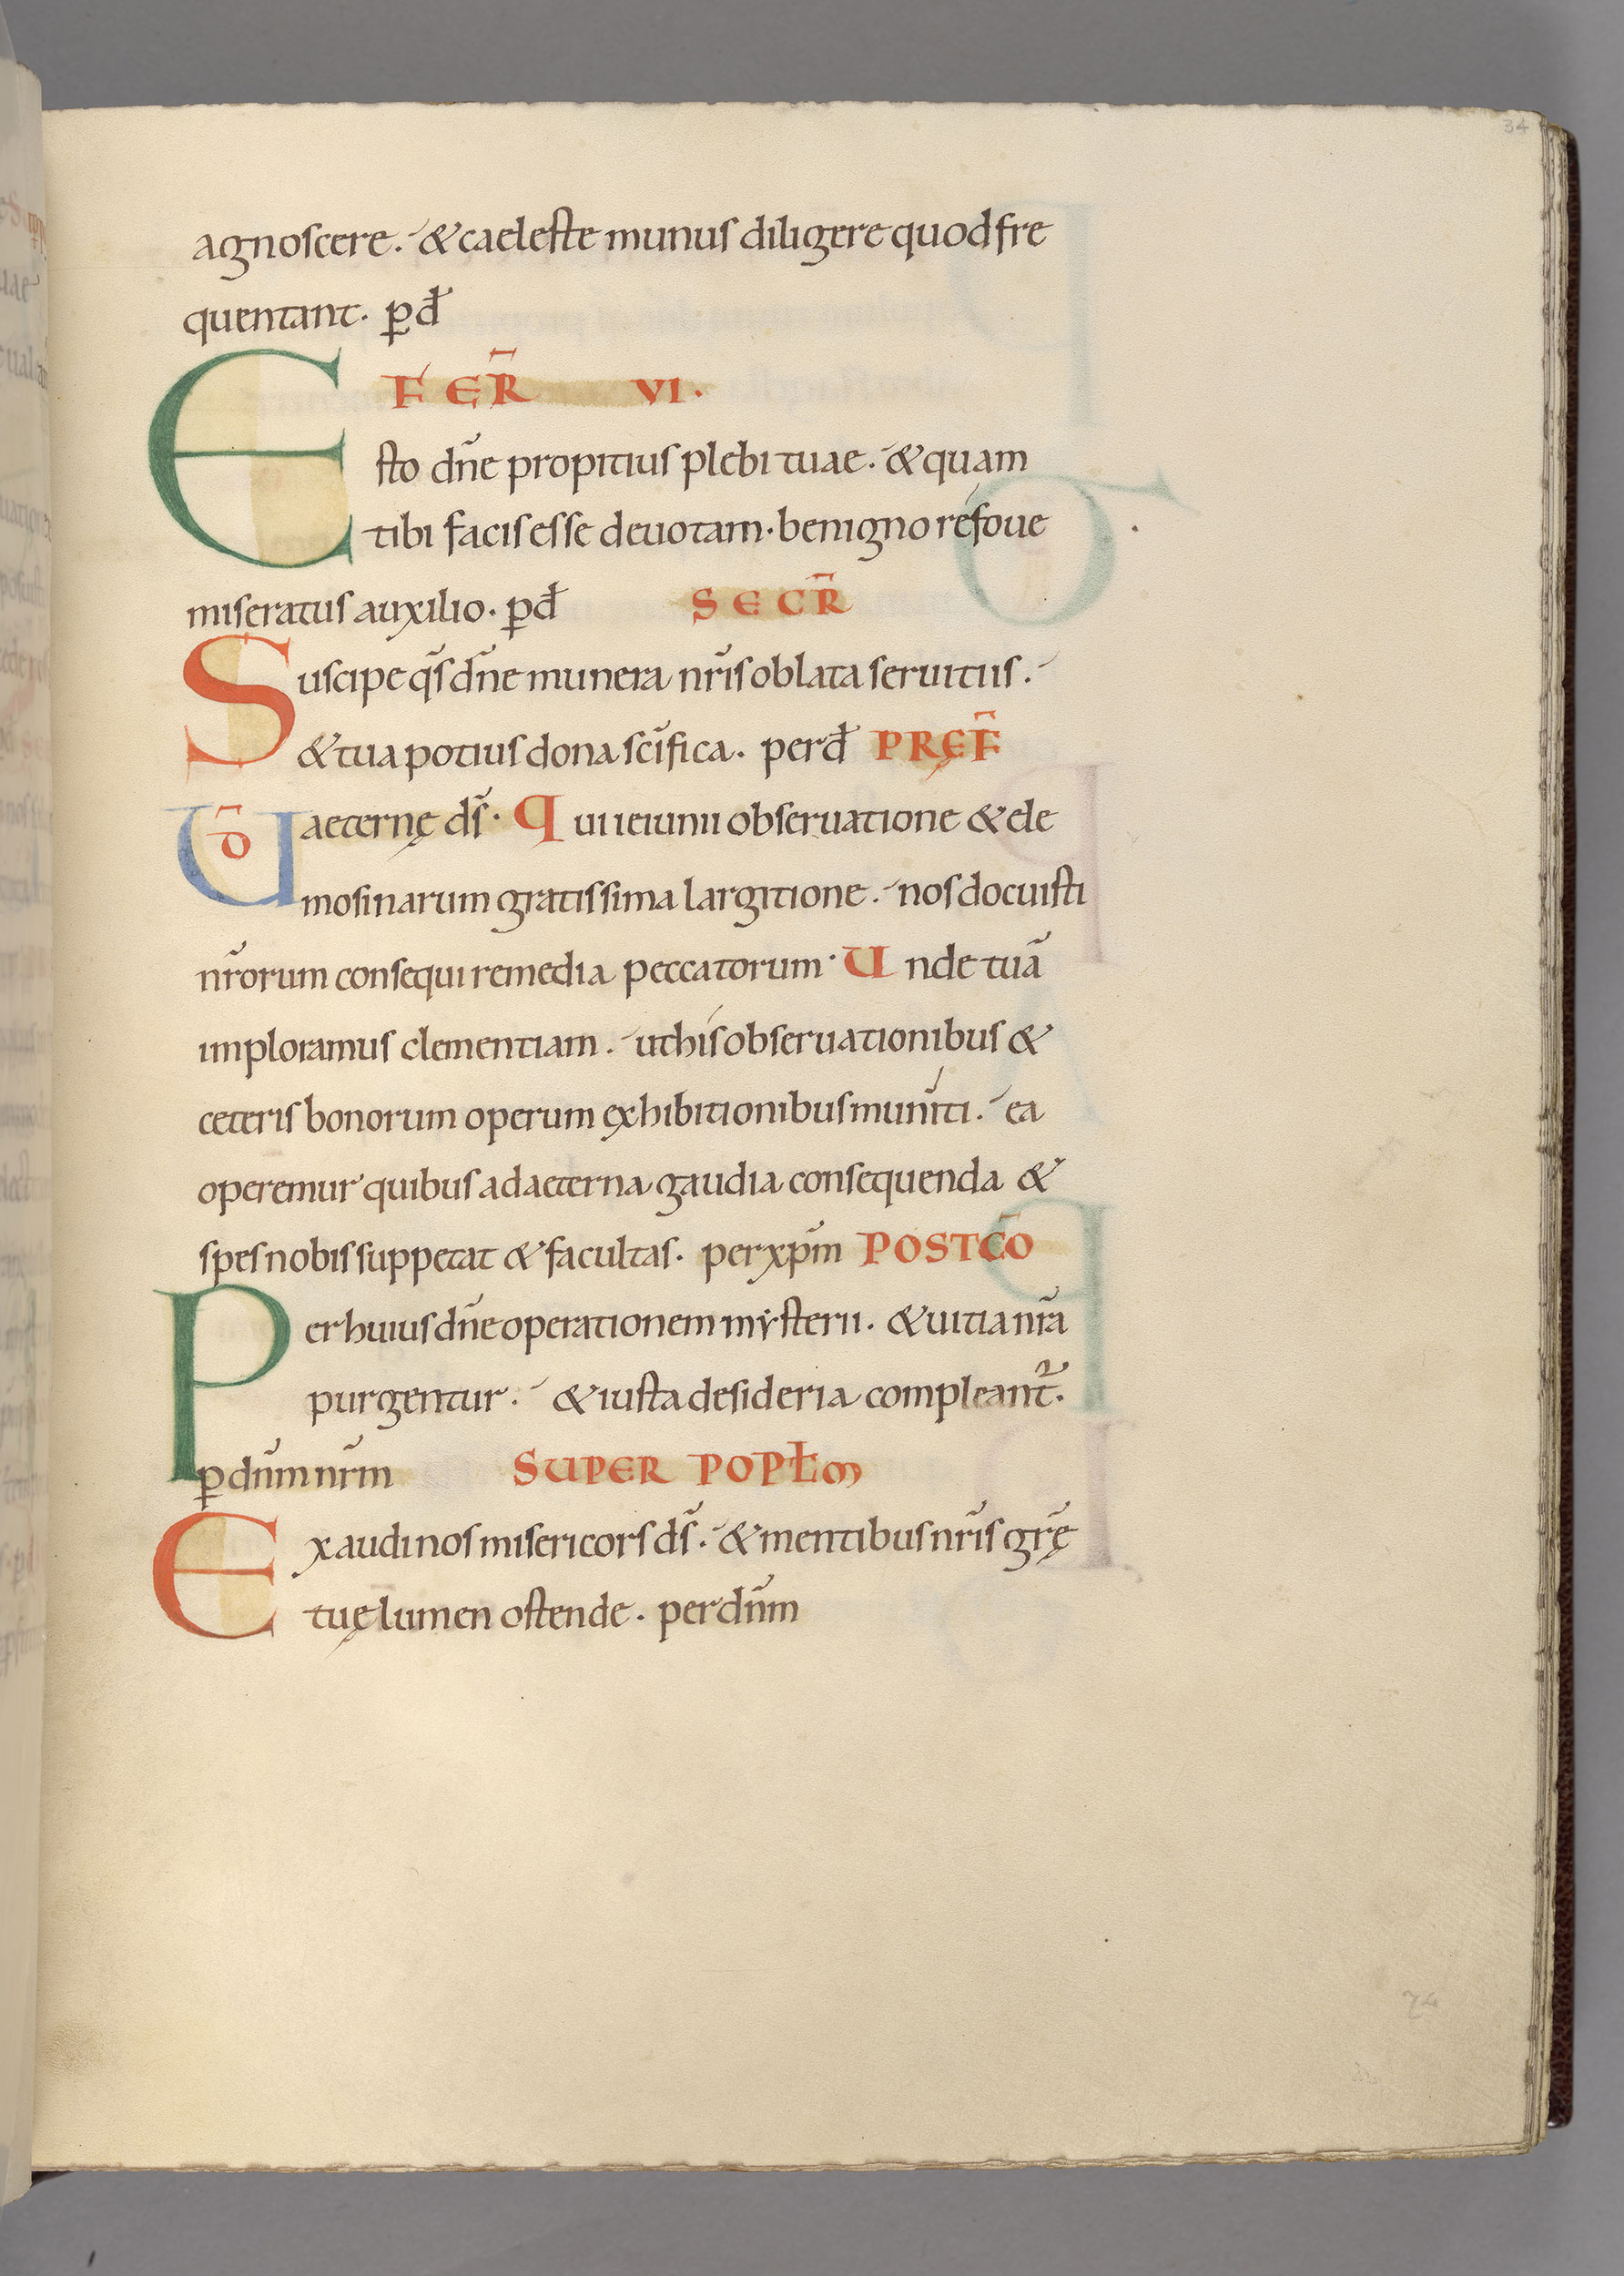 34
agnoscere. & caeleste munus diligere quod fre
quentant. p̱ đ
FER̄ VI.
Esto dn̄e propitius plebi tuae. & quam
tibi facis esse deuotam. benigno refoue
miseratus auxilio. p̱ đ SECR̄
Suscipe q̄s dn̄e munera nr̄is oblata seruitiis.
& tua potius dona sc̄ifica. per đ PRĘF̄
UD̄ aeternę ds̄. Qui ieiunii obseruatione & ele
mosinarum gratissima largitione. nos docuisti
nr̄orum consequi remedia peccatorum. Unde tuā
imploramus clementiam. ut his obseruationibus &
ceteris bonorum operum exhibitionibus muniti. ea
operemur quibus ad aeterna gaudia consequenda &
spes nobis suppetat & facultas. per xp̄m POSTCŌ
Per huius dn̄e operationem mẏsterii. & uitia nr̄a
purgentur. & iusta desideria compleant̄.
p̱ dn̄m nr̄m SUPER POPŁM
Exaudi nos misericors ds̄. & mentibus nr̄is gr̄ę
tuę lumen ostende. per dn̄m